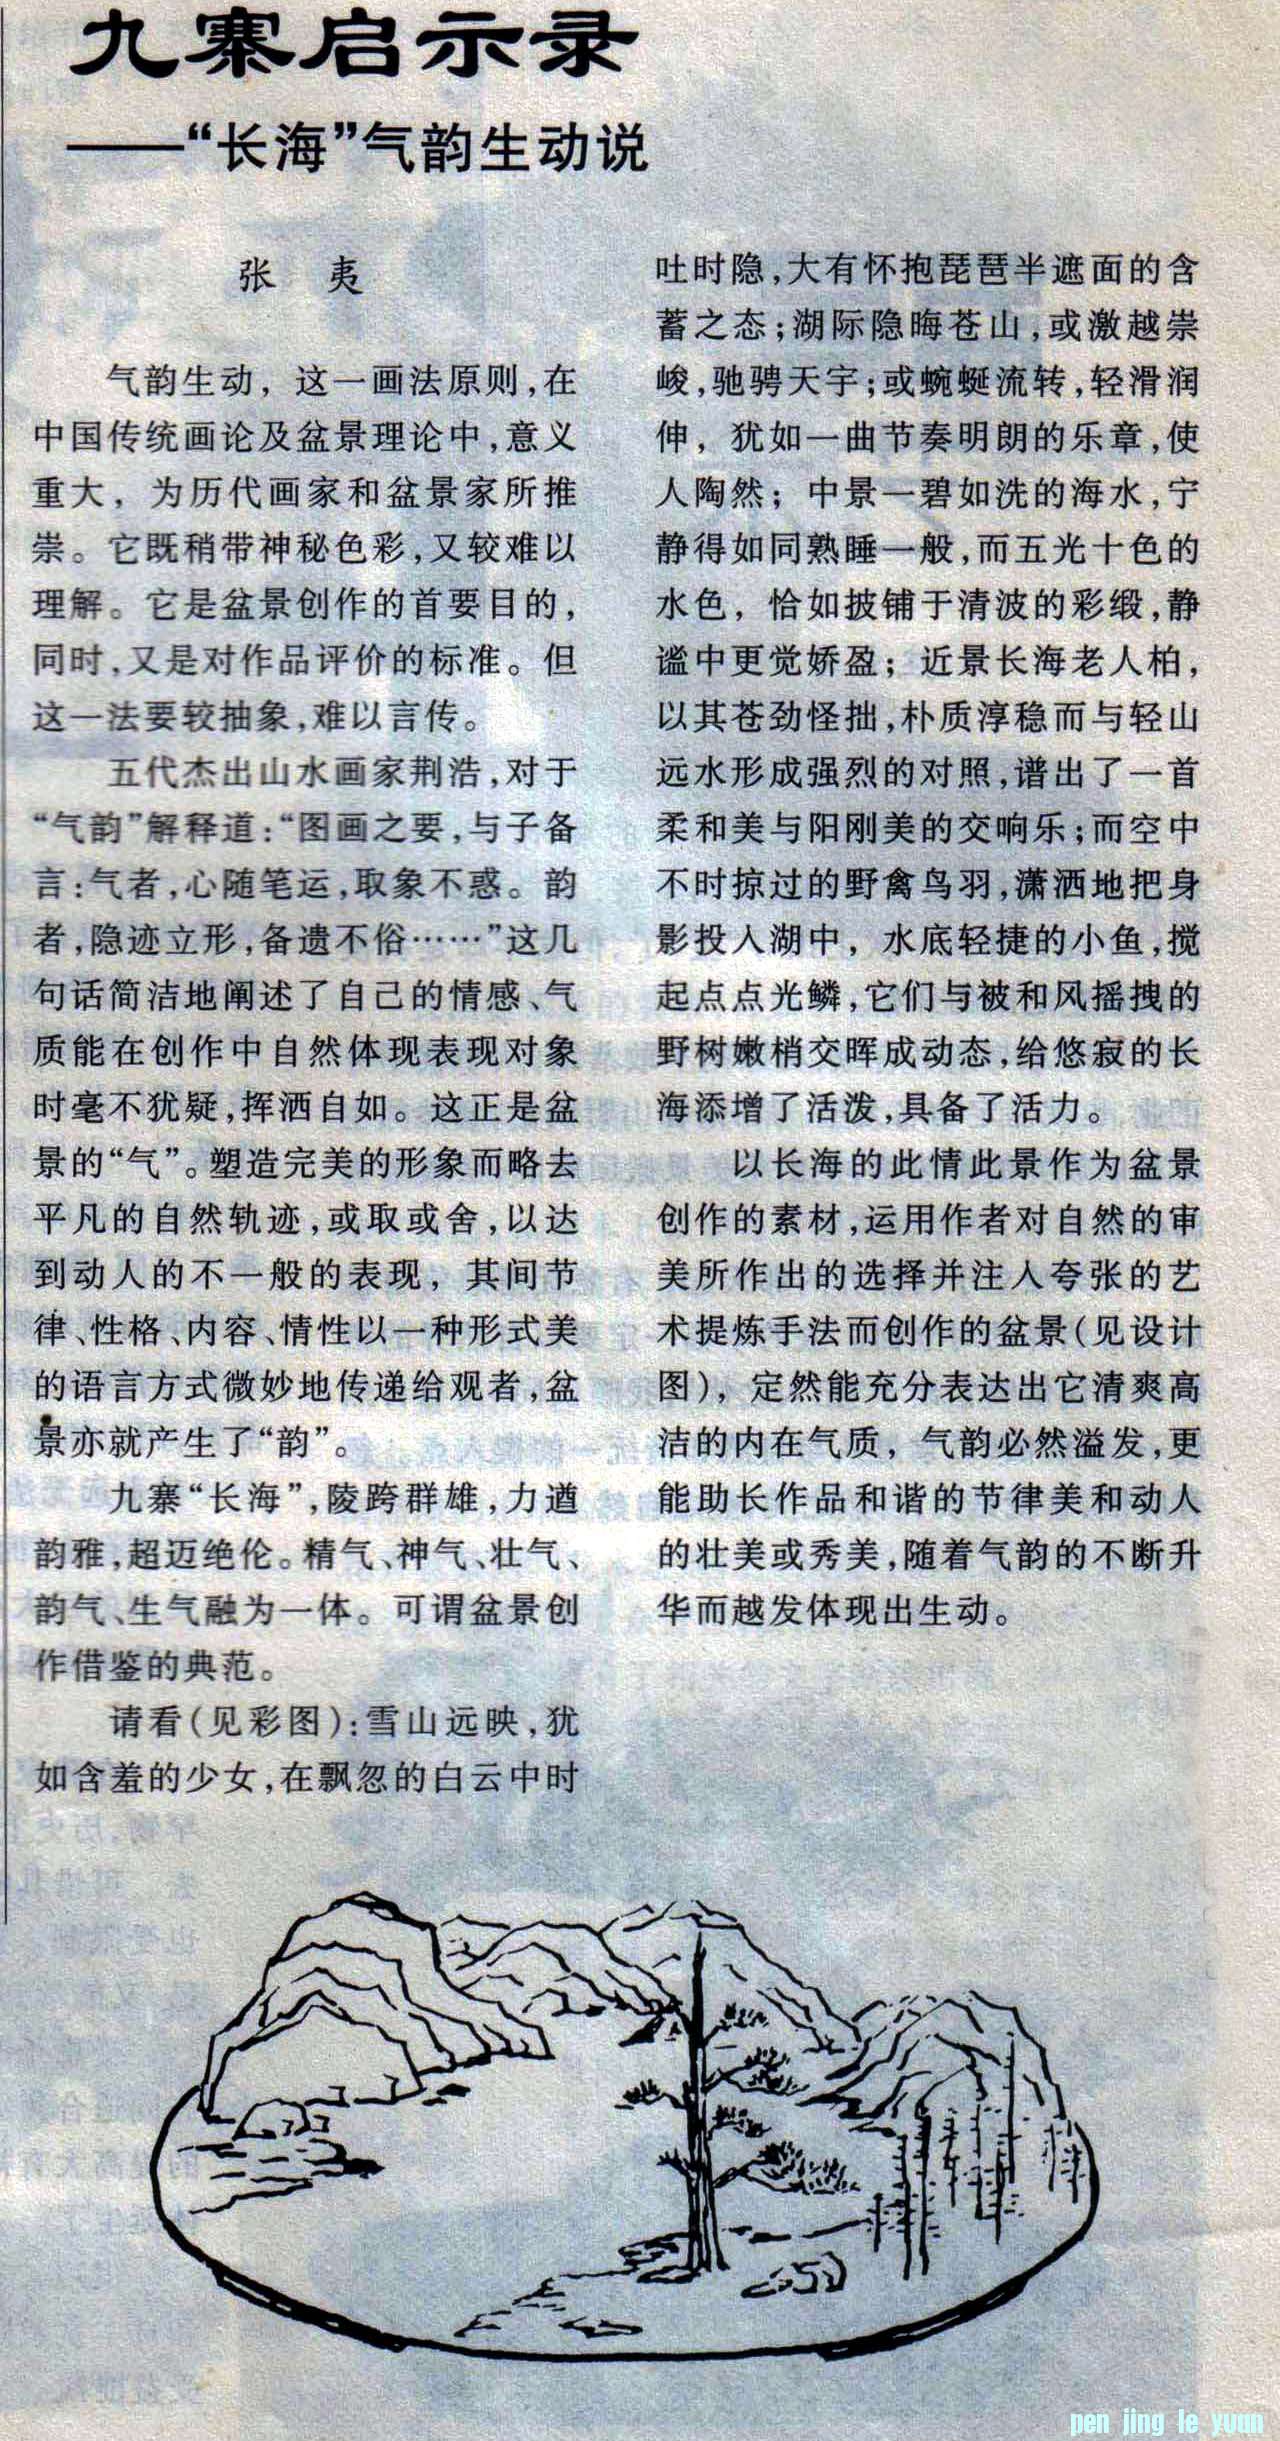 九寨启示录
——“长海”气韵生动说
张 夷
气韵生动，这一画法原则，在
中国传统画论及盆景理论中，意义
重大，为历代画家和盆景家所推
崇。它既稍带神秘色彩，又较难以
理解。它是盆景创作的首要目的，
同时，又是对作品评价的标准。但
这一法要较抽象，难以言传。
五代杰出山水画家荆浩，对于
“气韵”解释道：“图画之要，与子备
言：气者，心随笔运，取象不惑。韵
者，隐迹立形，备遗不俗……”这几
句话简洁地阐述了自己的情感、气
质能在创作中自然体现表现对象
时毫不犹疑，挥洒自如。这正是盆
景的“气”。塑造完美的形象而略去
平凡的自然轨迹，或取或舍，以达
到动人的不一般的表现，其间节
律、性格、内容、情性以一种形式美
的语言方式微妙地传递给观者，盆
景亦就产生了“韵”。
九寨“长海”，陵跨群雄，力遒
韵雅，超迈绝伦。精气、神气、壮气、
韵气、生气融为一体。可谓盆景创
作借鉴的典范。
请看（见彩图）：雪山远映，犹
如含羞的少女，在飘忽的白云中时
吐时隐，大有怀抱琵琶半遮面的含
蓄之态；湖际隐晦苍山，或激越崇
峻，驰骋天宇；或蜿蜒流转，轻滑润
伸，犹如一曲节奏明朗的乐章，使
人陶然；中景一碧如洗的海水，宁
静得如同熟睡一般，而五光十色的
水色，恰如披铺于清波的彩缎，静
谧中更觉娇盈；近景长海老人柏，
以其苍劲怪拙，朴质淳稳而与轻山
远水形成强烈的对照，谱出了一首
柔和美与阳刚美的交响乐；而空中
不时掠过的野禽鸟羽，潇洒地把身
影投入湖中，水底轻捷的小鱼，搅
起点点光鳞，它们与被和风摇拽的
野树嫩梢交晖成动态，给悠寂的长
海添增了活泼，具备了活力。
以长海的此情此景作为盆景
创作的素材，运用作者对自然的审
美所作出的选择并注入夸张的艺
术提炼手法而创作的盆景（见设计
图），定然能充分表达出它清爽高
洁的内在气质，气韵必然溢发，更
能助长作品和谐的节律美和动人
的壮美或秀美，随着气韵的不断升
华而越发体现出生动。
pen jing le yuan